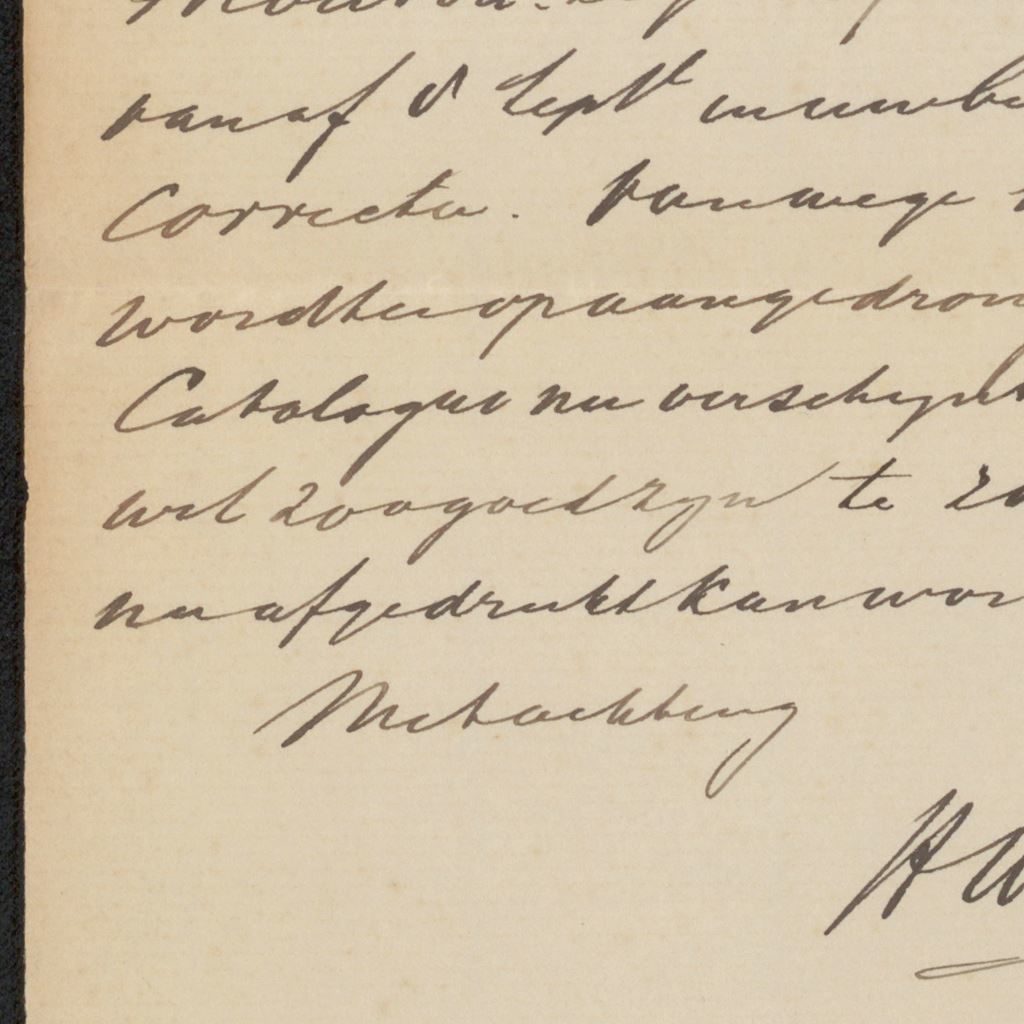 vanaf 8 Sept
Correctie. Vanwege
wordt er op aangedron
Catalogus nu verschijnt
wel zoo goed zijn te
nu afgedrukt kan wor
Met achting
H W